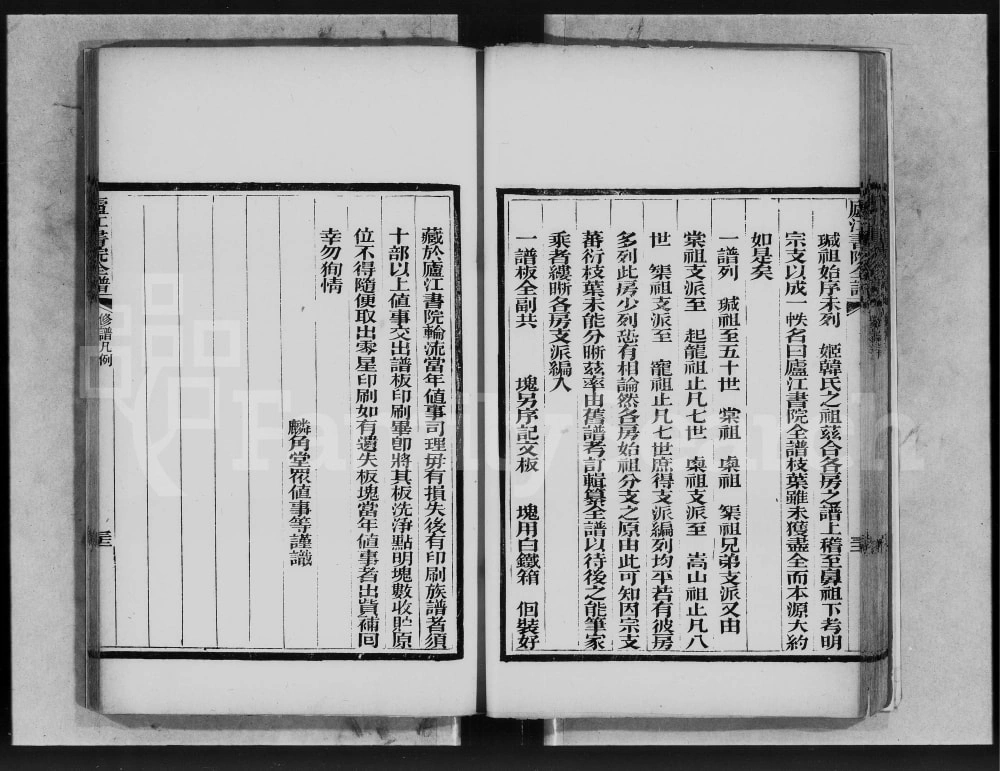 瑊祖始序未列　姬韓氏之祖茲合各房之譜上稽至鼻祖下考明
宗支以成一帙名曰廬江書院全譜枝葉雖未獲盡全而本源大約
如是矣
一譜列　瑊祖至五十世　棠祖　㮚祖　榘祖兄弟支派又由
棠祖支派至　起龍祖止凡七世　㮚祖支派至　嵩山祖止凡八
世　榘祖支派至　寵祖止凡七世庶得支派編列均平若有彼房
多列此房少列恐有相論然各房始祖分支之原由此可知因宗支
蕃衍枝葉未能分晣茲率由舊譜考訂輯纂全譜以待後之能筆家
乘者縷晣各房支派編入
一譜板全副共　　塊另序記文板　　塊用白鐵箱　個裝好
廬江書院全譜
藏於廬江書院輪流當年值事司理毋有損失後有印刷族譜者須
十部以上值事交出譜板印刷畢卽將其板洗淨點明塊數收貯原
位不得隨便取出零星印刷如有遺失板塊當年值事者出貲補回
幸勿狥情
麟角堂眾值事等謹識
廬江書院全譜
修譜凡例
三
FamilySearch